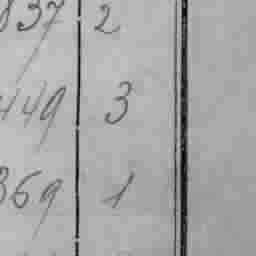 837 2
449 3
369 1